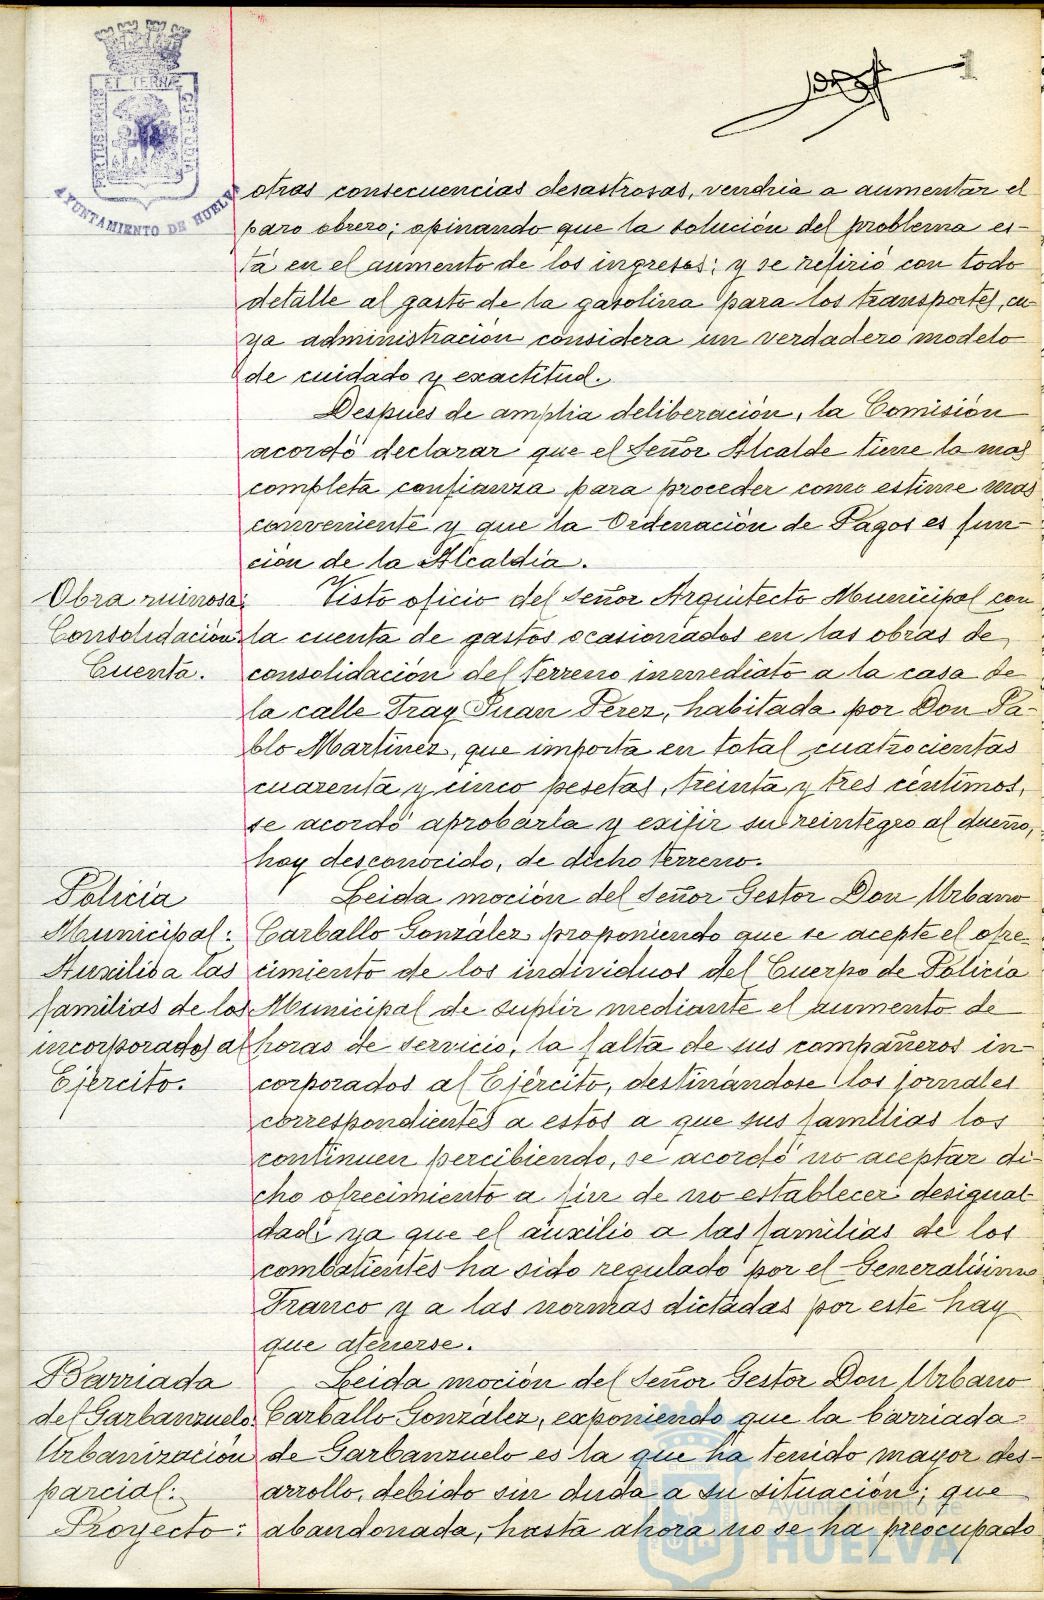 1
ET TERRÆ
PORTUS MARIS
CUSTODIA
AYUNTAMIENTO DE HUELVA
otras consecuencias desastrosas, vendria a aumentar el
paro obrero; opinando que la solución del problema es-
tá en el aumento de los ingresos; y se refirió con todo
detalle al gasto de la gasolina para los transportes, cu-
ya administración considera un verdadero modelo
de cuidado y exactitud.
Despues de amplia deliberación, la Comisión
acordó declarar que el Señor Alcalde tiene la mas
completa confianza para proceder como estime mas
conveniente y que la Ordenación de Pagos es fun-
ción de la Alcaldía.
Obra ruinosa:
Consolidación
Cuenta.
Visto oficio del Señor Arquitecto Municipal con
la cuenta de gastos ocasionados en las obras de
consolidación del terreno inmediato a la casa de
la calle Fray Juan Perez, habitada por Don Pa-
blo Martínez, que importa en total cuatrocientas
cuarenta y cinco pesetas, treinta y tres céntimos,
se acordó aprobarla y exijir su reintegro al dueño,
hoy desconocido, de dicho terreno.
Policía
Municipal:
Auxilio a las
familias de los
incorporados al
Ejército.
Leida moción del Señor Gestor Don Urbano
Carballo González proponiendo que se acepte el ofre-
cimiento de los individuos del Cuerpo de Policía
Municipal de suplir mediante el aumento de
horas de servicio, la falta de sus compañeros in-
corporados al Ejército, destinándose los jornales
correspondientes a estos a que sus familias los
continuen percibiendo, se acordó no aceptar di-
cho ofrecimiento a fin de no establecer desigual-
dad; ya que el auxilio a las familias de los
combatientes ha sido regulado por el Generalísimo
Franco y a las normas dictadas por este hay
que atenerse.
Barriada
del Garbanzuelo.
Urbanización
parcial:
Proyecto:
Leida moción del Señor Gestor Don Urbano
Carballo González, exponiendo que la barriada
de Garbanzuelo es la que ha tenido mayor des-
arrollo, debido sin duda a su situación; que
abandonada, hasta ahora no se ha preocupado
Ayuntamiento de
HUELVA